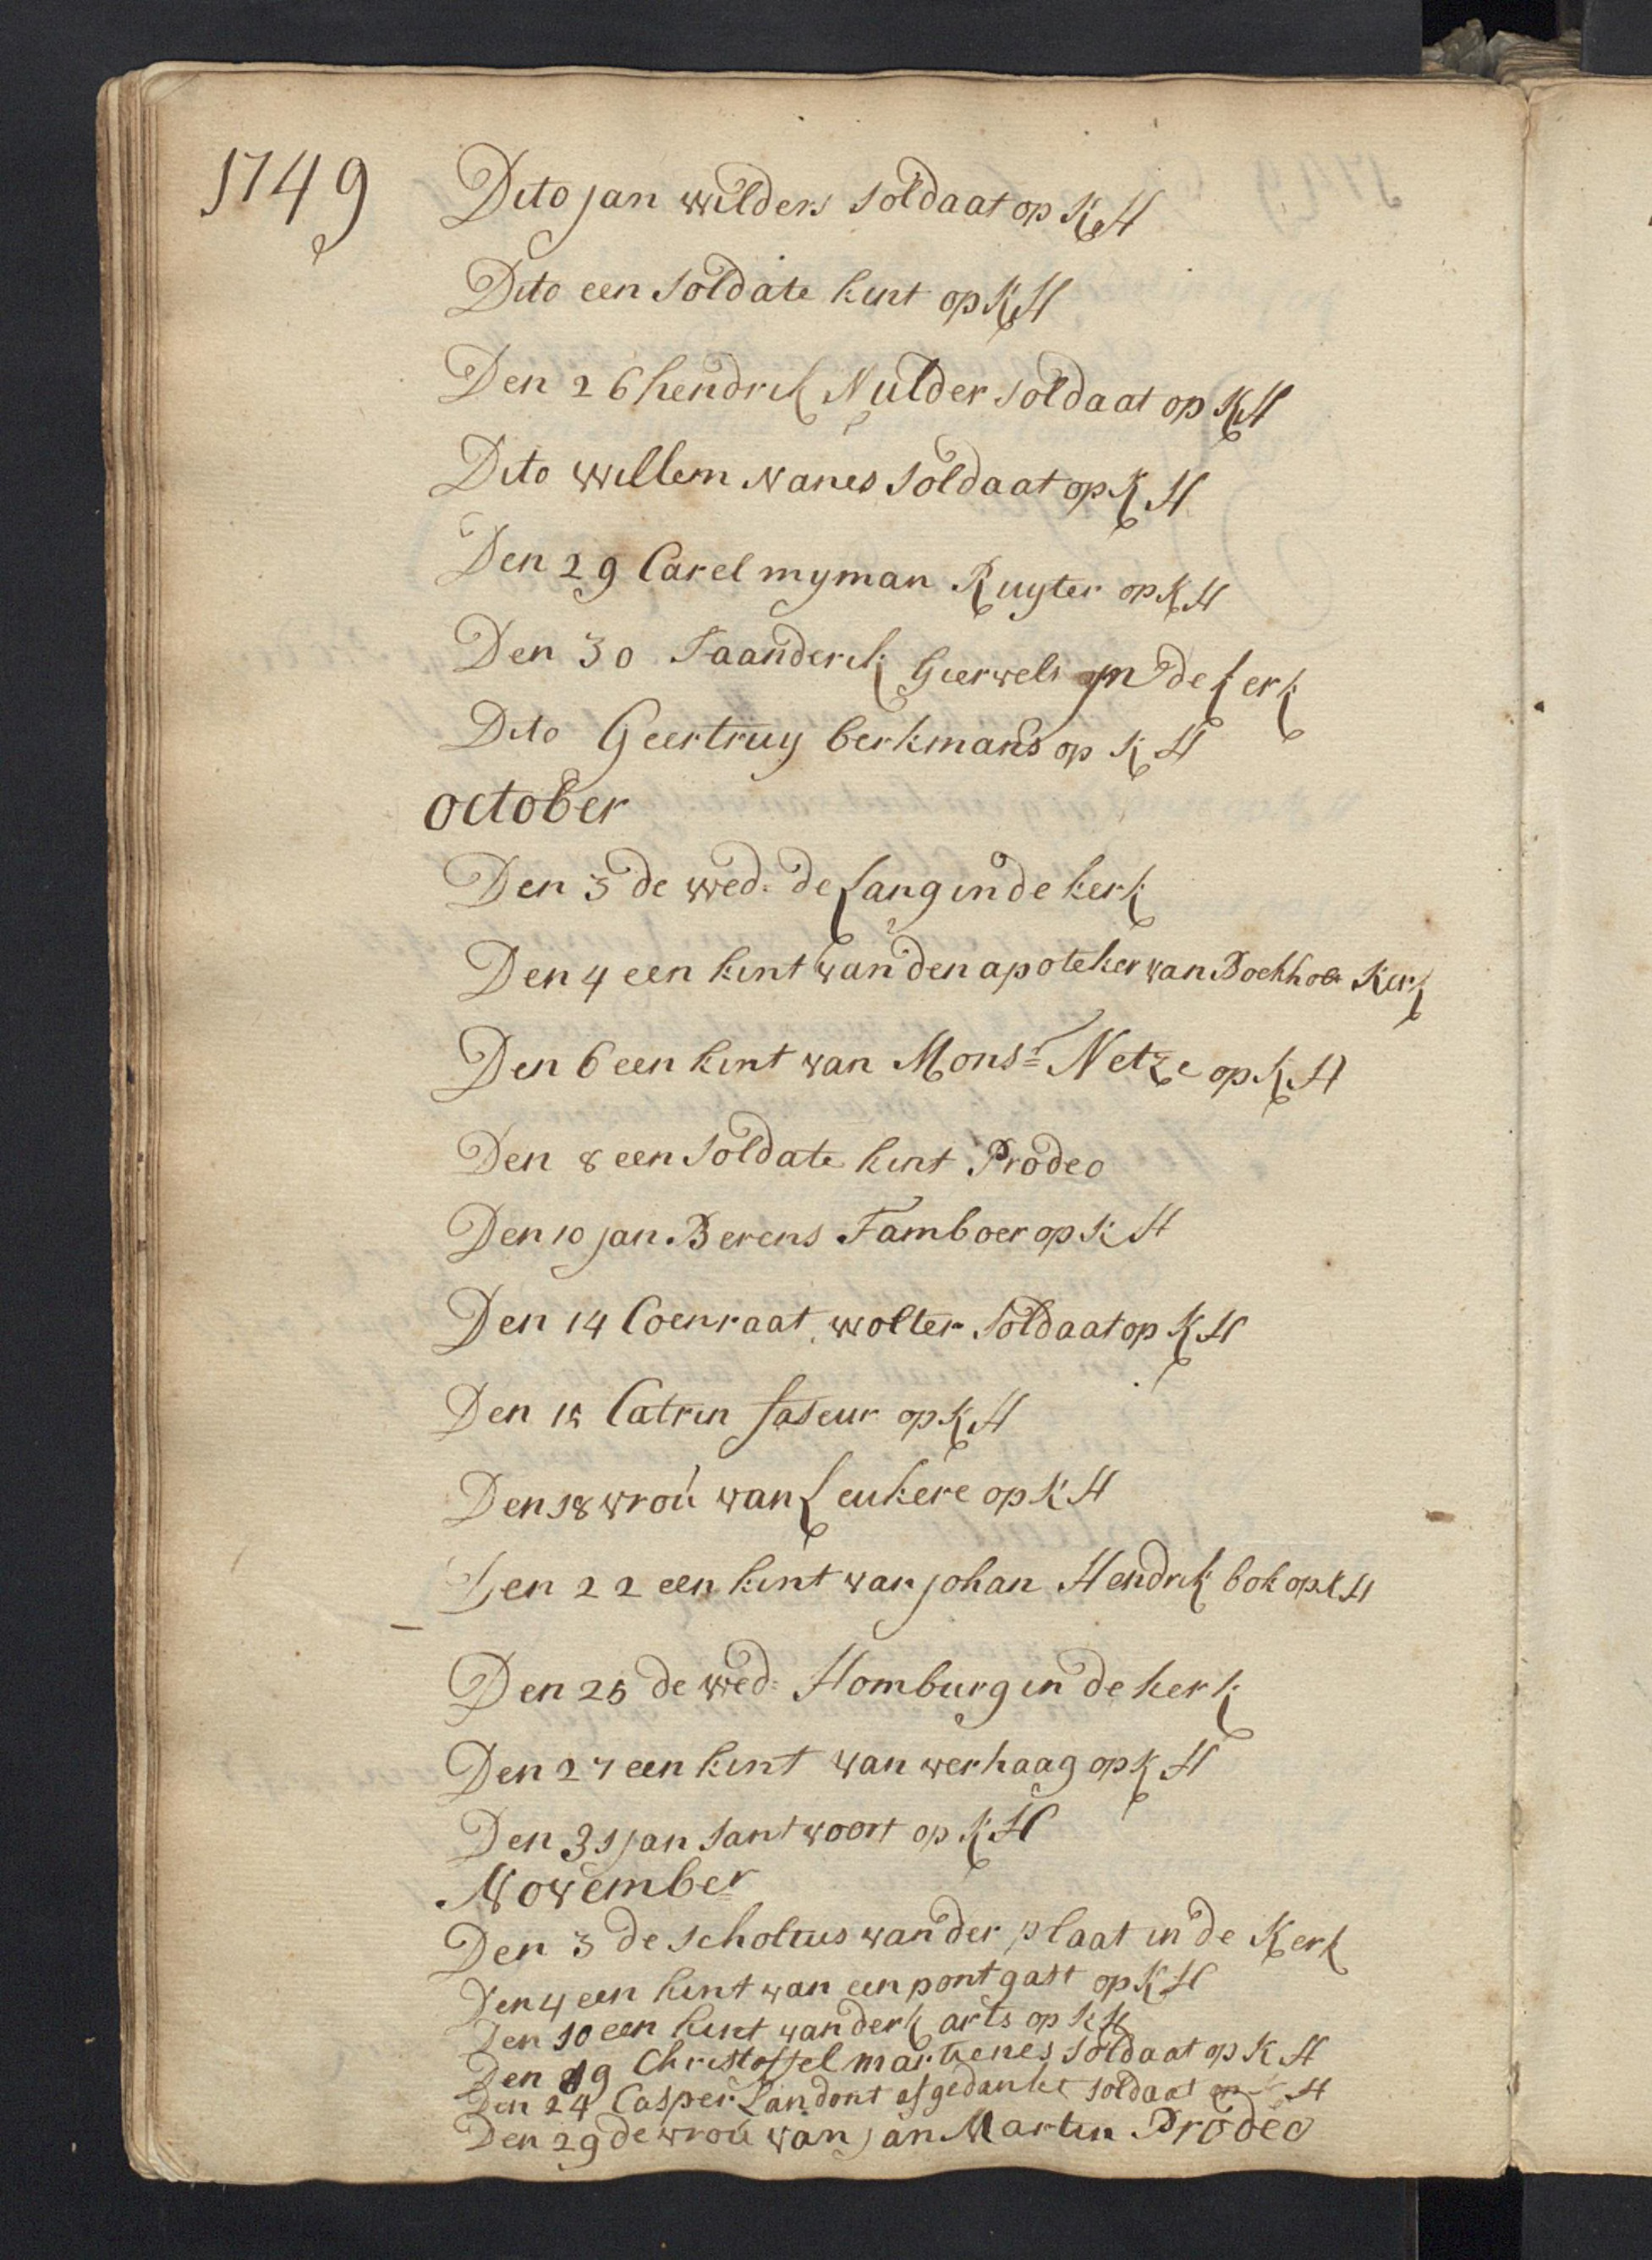 1749
Dito jan wilders soldaat op KH
Dito een soldate kint op KH
Den 26 hendrik Nulder soldaat op KH
Dito willem Nanes soldaat op KH
Den 29 Carel myman Ruyter op KH
Den 30 Taanderik in de kerk
Dito Geertruy berkmans op KH
october
Den 3 de wed: de Lang in de kerk
Den 4 een kint van den apoteker van Kerk
Den 6 een kint van Monsr Netze op KH
Den 8 een soldate kint Prodeo
Den 10 jan Berens Tamboer op KH
Den 14 Coenraat wolter soldaat op KH
Den 15 Catrin op KH
Den 18 vrou van Leukere op KH
Den 22 een kint van johan Hendrik bok op KH
Den 25 de wed: Homburg in de kerk
Den 27 een kint van verhaag op KH
Den 31 jan santvoort op KH
November
Den 3 de scholtus van der plaat in de Kerk
Den 4 een kint van een pontgast op KH
Den 10 een kint van derk arts op KH
Den 19 Christoffel martienes soldaat op KH
Den 24 Casper Landont afgedankt soldaat op KH
Den 29 de vrou van jan Martin Prodeo